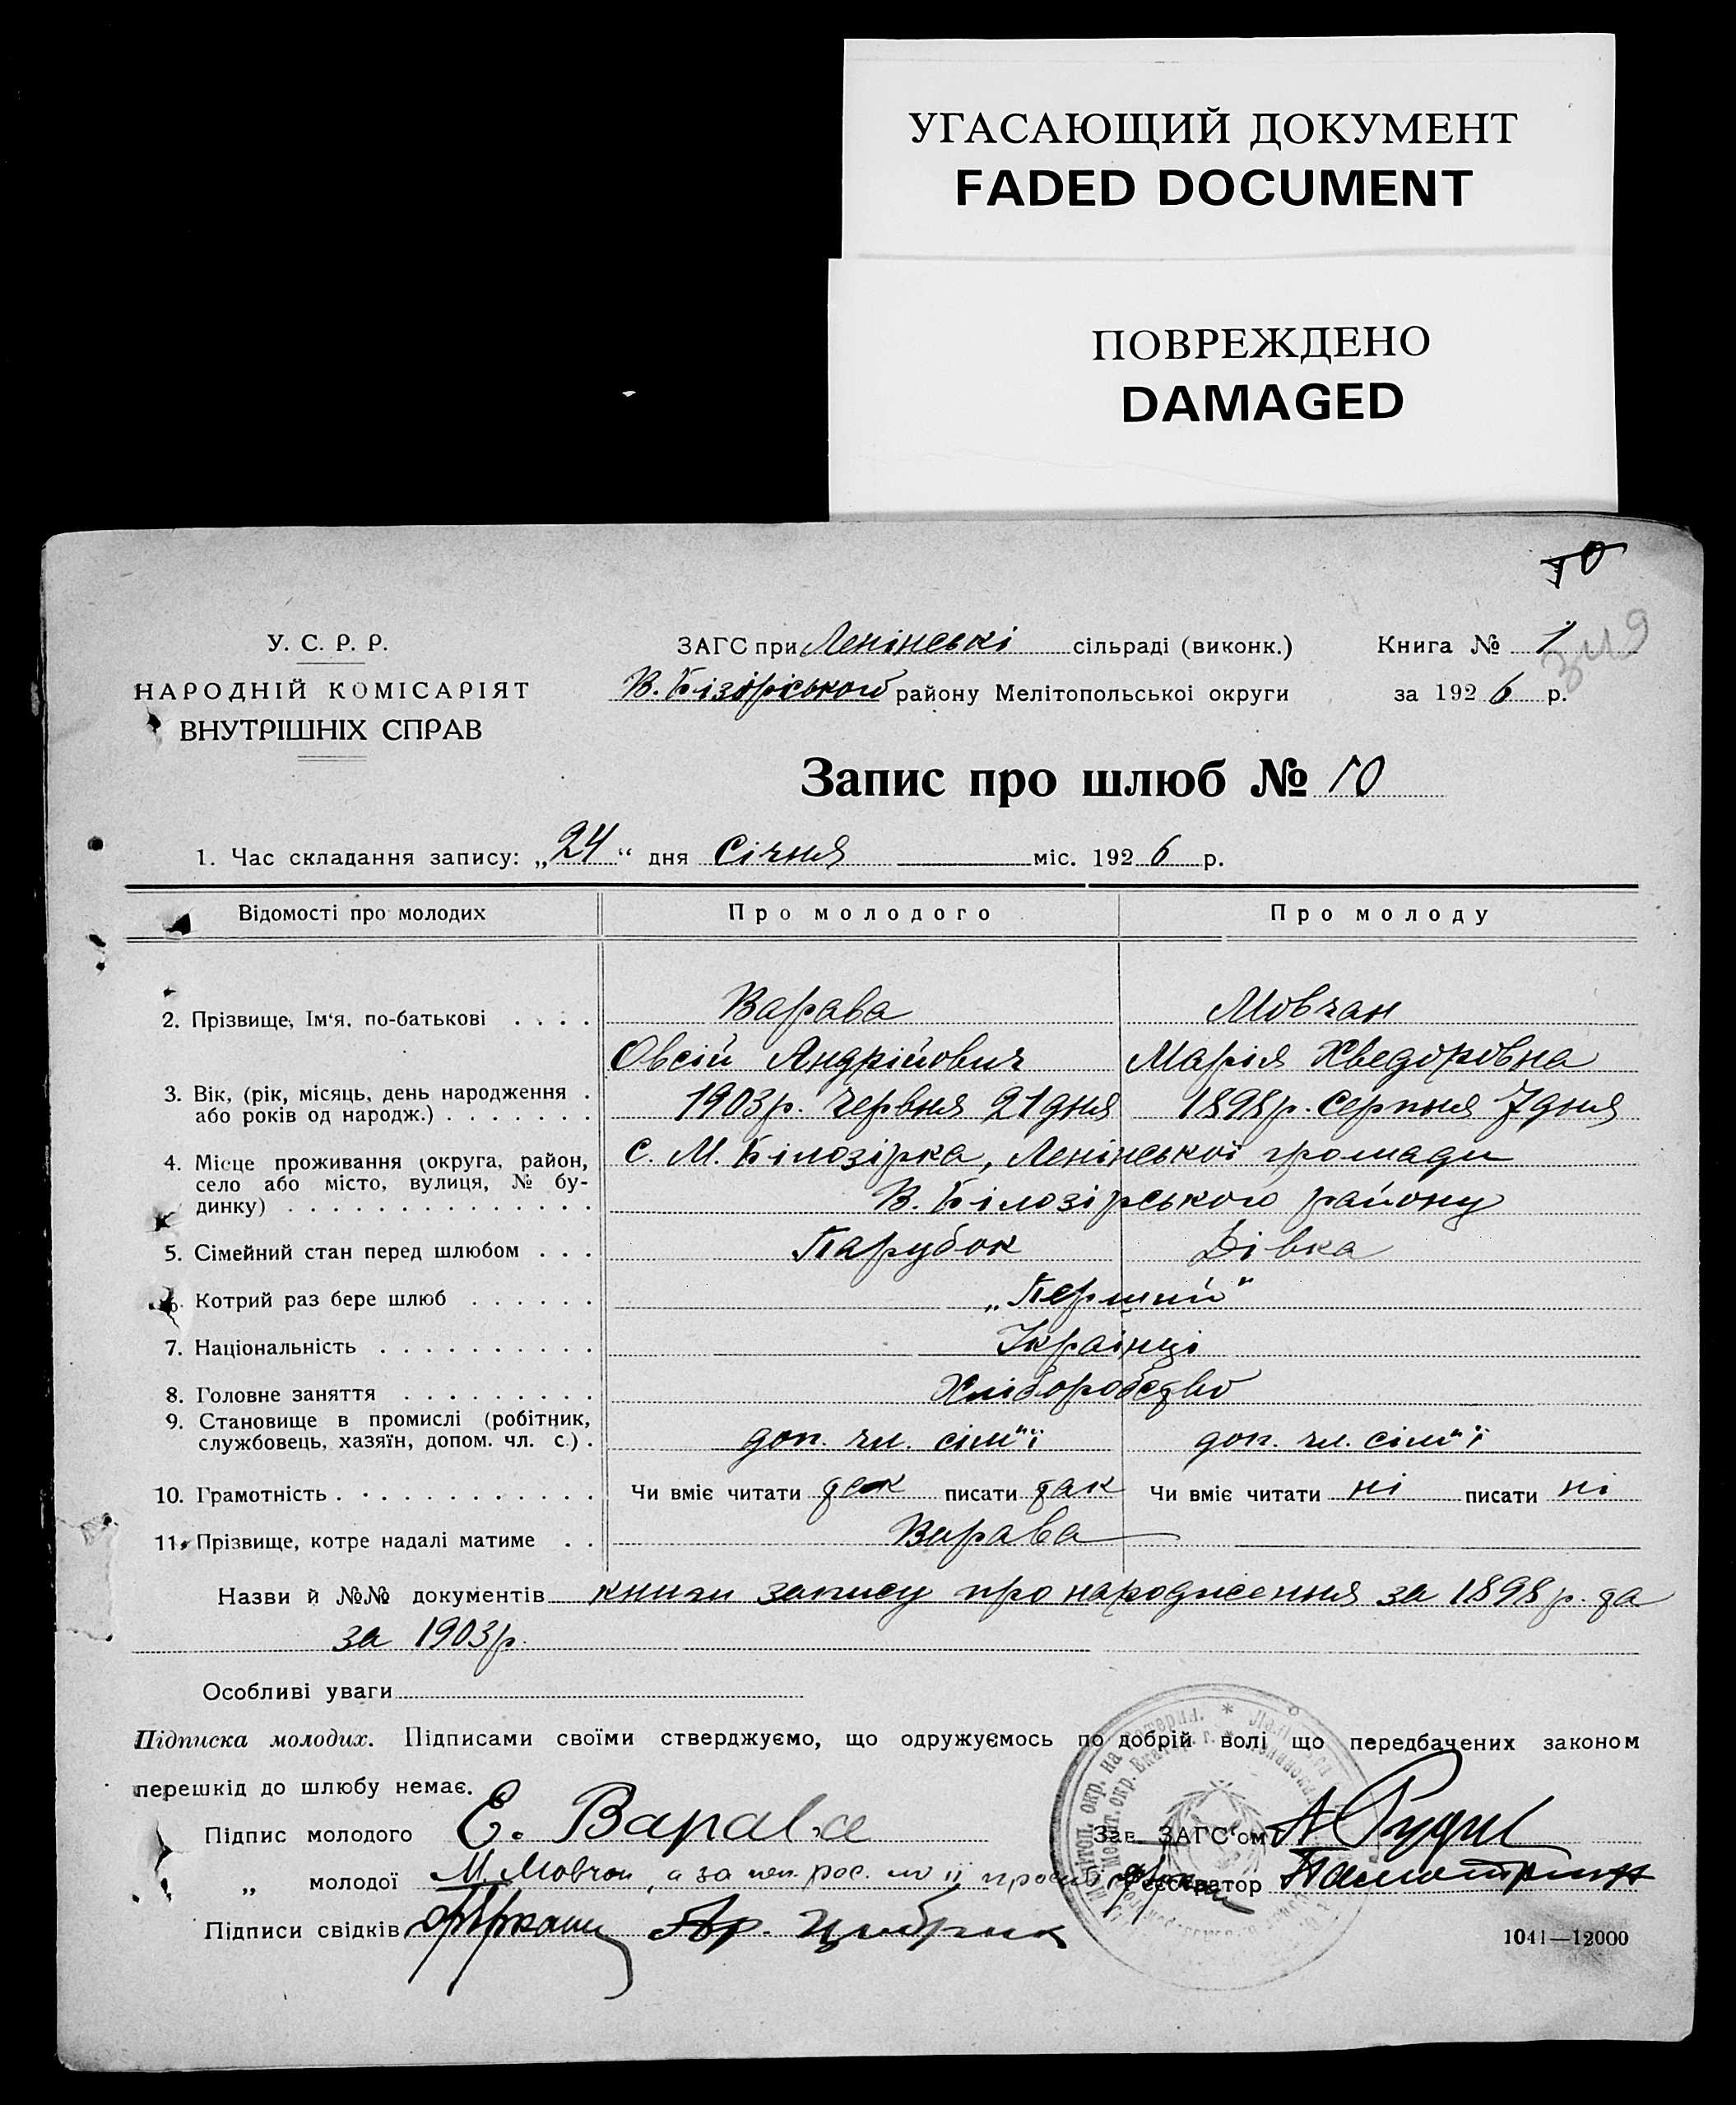 УГАСАЮЩИЙ ДОКУМЕНТ
FADED DOCUMENT
ПОВРЕЖДЕНО
DAMAGED
10
349
У. С. Р. Р.
НАРОДНІЙ КОМІСАРІЯТ
ВНУТРІШНІХ СПРАВ
ЗАГС при Ленінські сільраді (виконк.)
В. Бізірського району Мелітопольської округи
Книга № 1
за 1926 р.
Запис про шлюб № 10
1. Час складання запису: „24“ дня Січня міс. 1926 р.
Відомості про молодих Про молодого Про молоду
2. Прізвище, Ім‘я, по-батькові . . . . Варава Мовчан
Овсій Андрійович Марія Хведоровна
3. Вік, (рік, місяць, день народження . 1903 р. червня 21 дня 1898 р. Серпня 7 дня
або років од народж.) . . . . . . .
4. Місце проживання (округа, район, с. М. Білозірка, Ленінської громади
село або місто, вулиця, № бу-
динку) . . . . . . . . . . . . . . В. Білозірського району
5. Сімейний стан перед шлюбом . . . Парубок Дівка
6. Котрий раз бере шлюб . . . . . . „Перший“
7. Національність . . . . . . . . . . Українці
8. Головне заняття . . . . . . . . . Хліборобство
9. Становище в промислі (робітник,
службовець, хазяїн, допом. чл. с.) . доп. чл. сім"ї доп. чл. сім"ї
10. Грамотність . . . . . . . . . . . . Чи вміє читати так писати так Чи вміє читати ні писати ні
11. Прізвище, котре надалі матиме . . Варава
Назви й №№ документів книги запису про народження за 1898 р. та
за 1903 р.
Особливі уваги
Підписка молодих. Підписами своїми стверджуємо, що одружуємось по добрій волі що передбачених законом
перешкід до шлюбу немає.
Підпис молодого Е. Варава
Зав. ЗАГС‘ом
„ молодої М. Мовчан, а за неп. рос. по її просьбі
Реєстратор
Підписи свідків
1041—12000